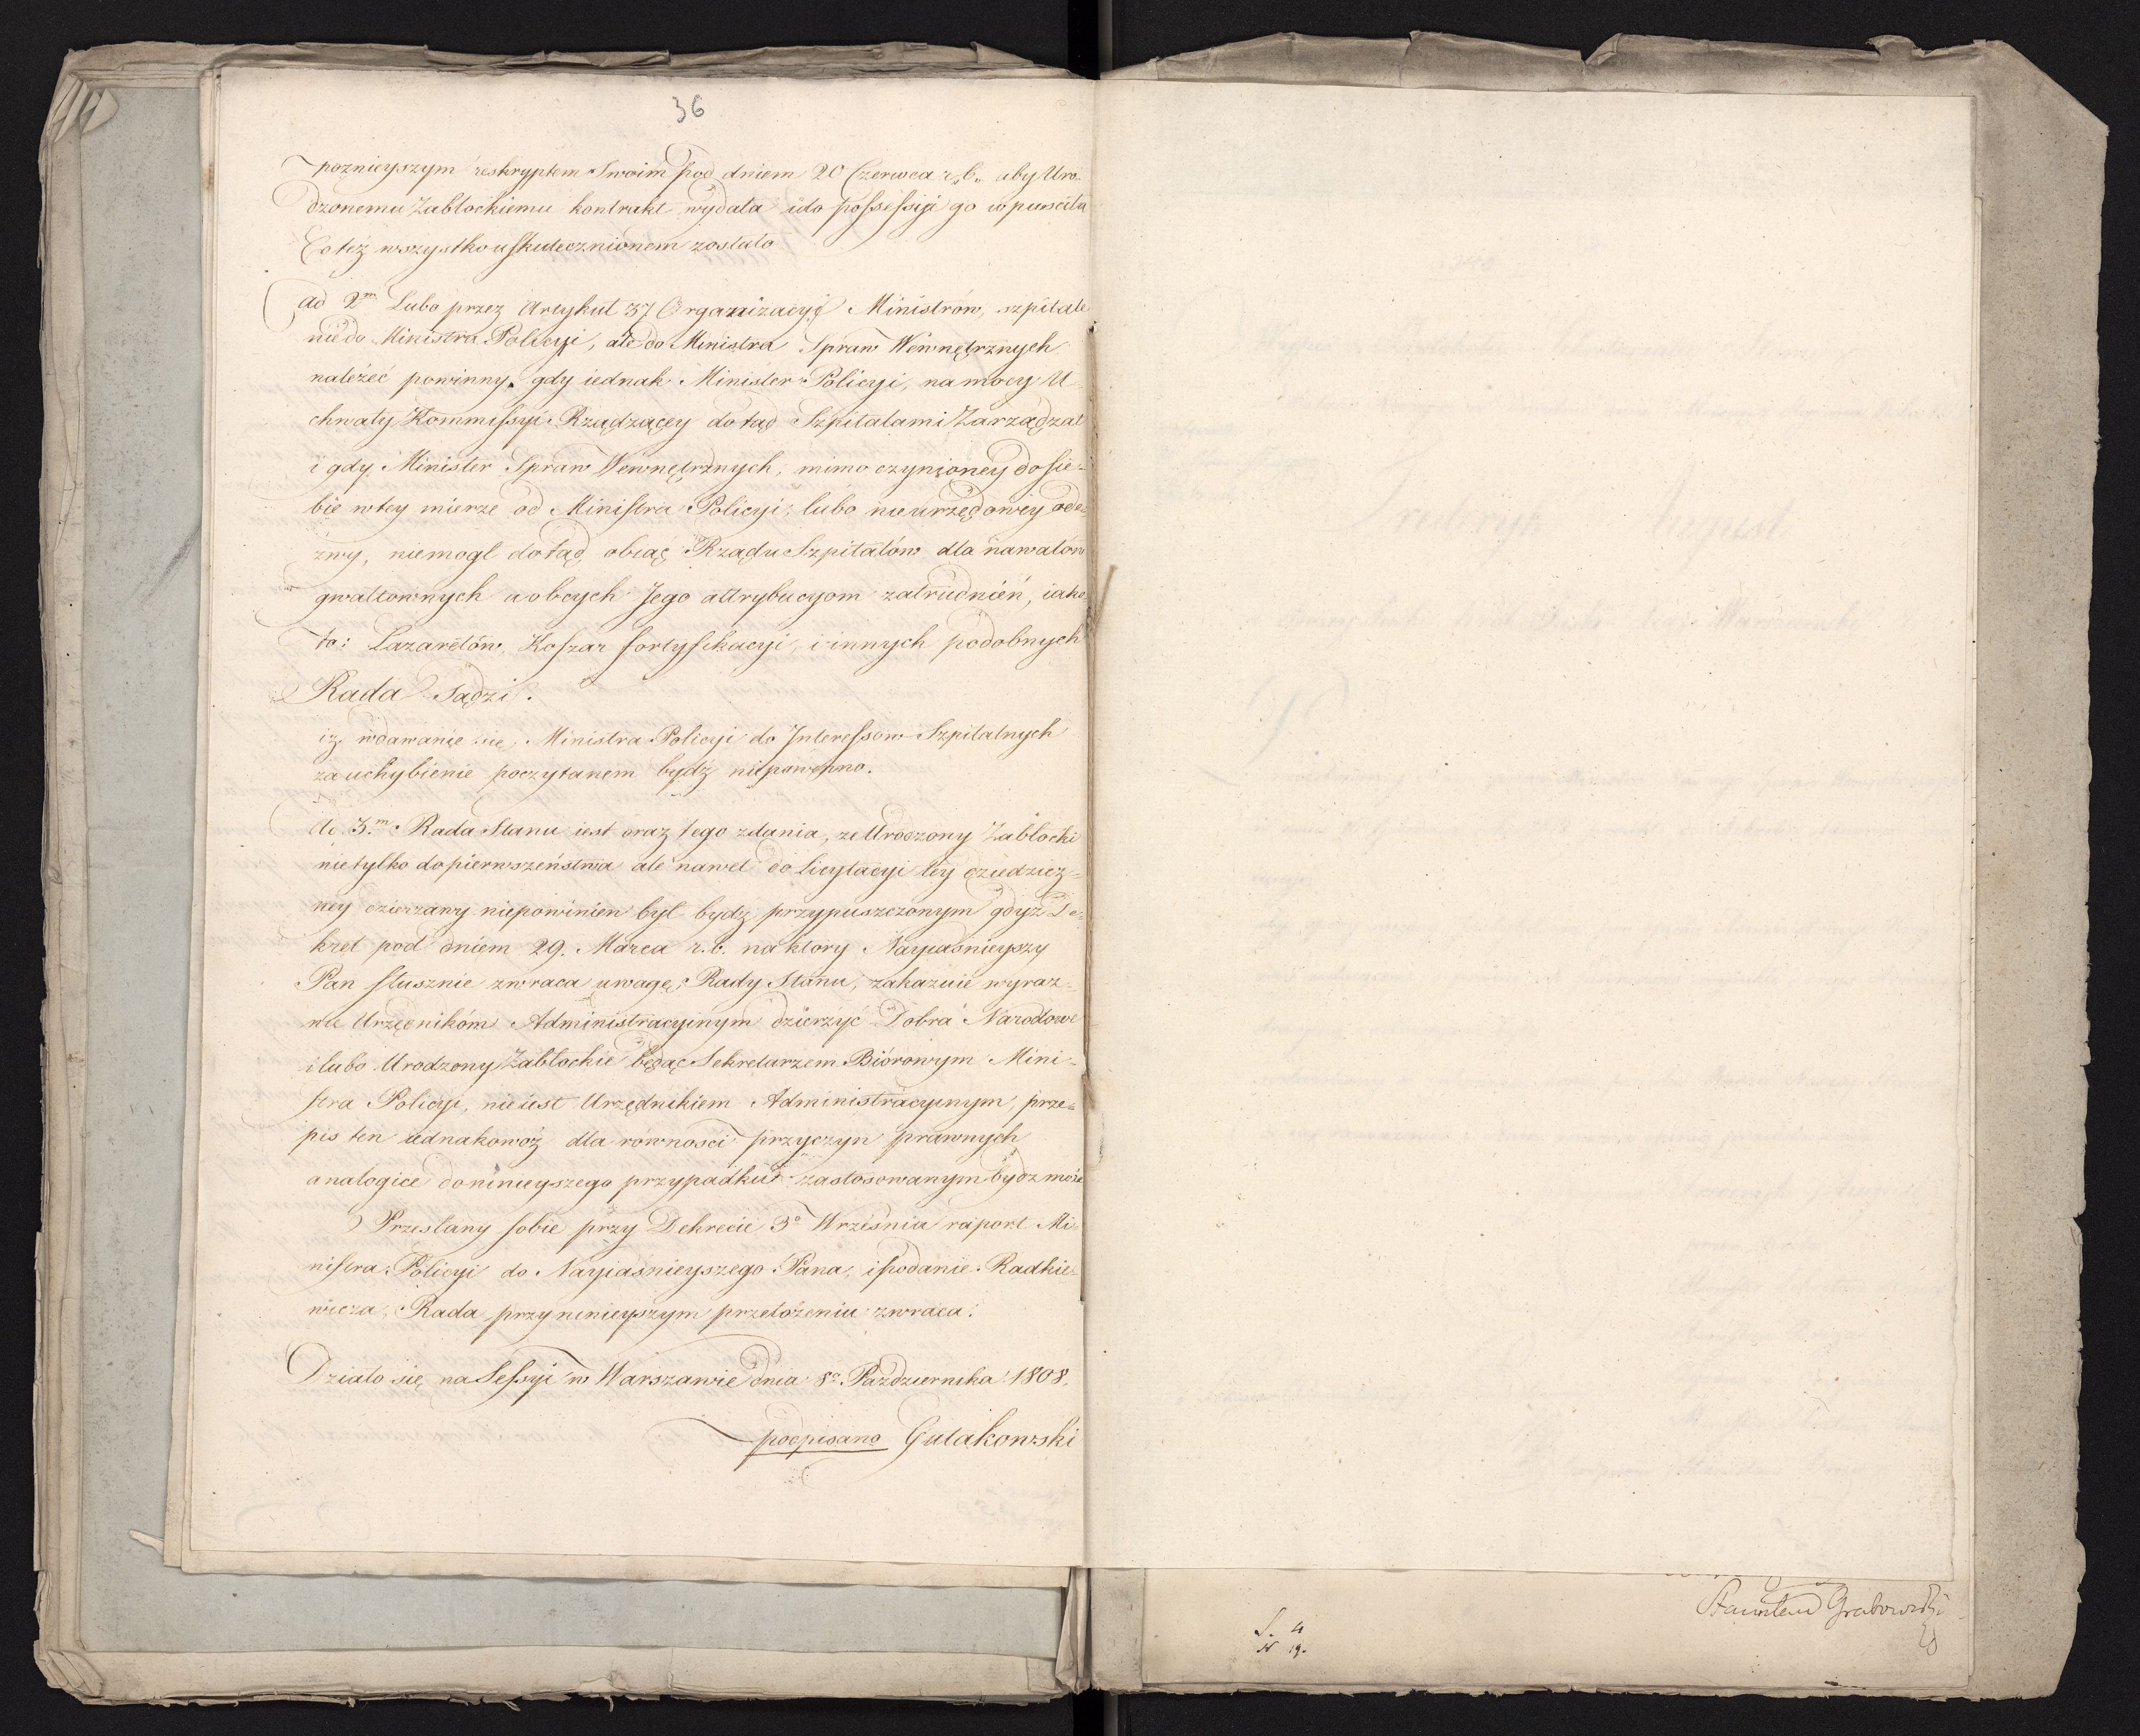 36
poznieyszym reskryptem Swoim pod dniem 20 Czerwca r. b. aby Uro-
dzonemu Zabłockiemu kontrakt wydała i do possessyi go wpuściła
Co też wszystko uskutecznionem zostało
ad 2m Lubo przez Artykuł 37 Organizacyi Ministrów, szpitale
nie do Ministra Policyi, ale do Ministra Spraw Wewnętrznych
należeć powinny, gdy iednak Minister Policyi, na mocy U-
chwały Kommissyi Rządzącey dotąd Szpitalami Zarządzał
i gdy Minister Spraw Wewnętrznych, mimo czynioney do sie-
bie w tey mierze od Ministra Policyi, lubo nieurzędowey ode-
zwy, niemogł dotąd obiąć Rządu Szpitalów dla nawałów
gwałtownych a obcych Jego attrybucyom zatrudnień, iako
to: Lazaretów, Koszar fortyfikacyi, i innych podobnych
Rada Sądzi.
iż wdawanie się Ministra Policyi do Interessow Szpitalnych
za uchybienie poczytanem bydź niepowinno.
Ad 3.m Rada Stanu iest oraz tego zdania, że Urodzony Zabłocki
nietylko do pierwszeństwa ale nawet do licytacyi tey dziedzicz-
ney dzierzawy niepowinien był bydź przypuszczonym gdyż De-
kret pod dniem 29. Marca r. b. na ktory Nayiaśnieyszy
Pan słusznie zwraca uwagę Rady Stanu, zakazuie wyraz-
nie Urzędnikóm Administracyinym dzierzyć Dobra Narodowe
i lubo Urodzony Zabłockie będąc Sekretarzem Biórowym Mini-
stra Policyi, nieiest Urzędnikiem Administracyinym, prze-
pis ten iednakowoż dla równości przyczyn prawnych
analogice do ninieyszego przypadku zastosowanym bydz może
Przesłany sobie przy Dekrecie 3o Września raport Mi-
nistra Policyi do Nayiaśnieyszego Pana, i podanie Radkie-
wicza, Rada przy ninieyszym przełożeniu zwraca.
Działo się na Sessyi w Warszawie dnia 8o Pazdziernika 1808.
podpisano Gutakowski
Stanisław Grabowski
S. 4
N 19.